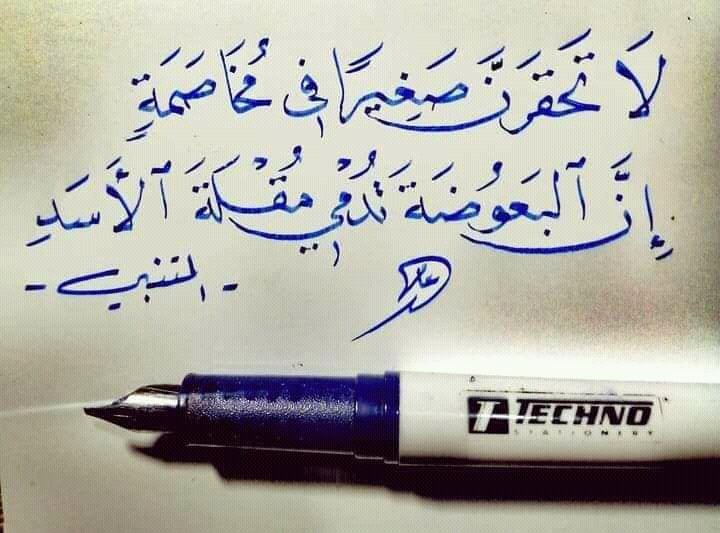 لَا تَحْقِرَنَّ صَغِيرًا فِي مُخَاصَمَةٍ
إِنَّ ٱلبَعُوضَةَ تُدْمِي مُقْلَةَ ٱلأَسَدِ
- المتنبي -
TECHNO
STATIONERY